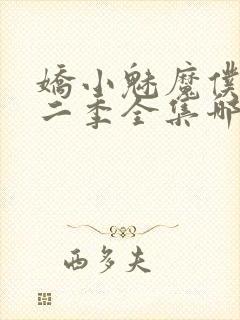 嬌小魅魔僕
二季全集哪
西多夫